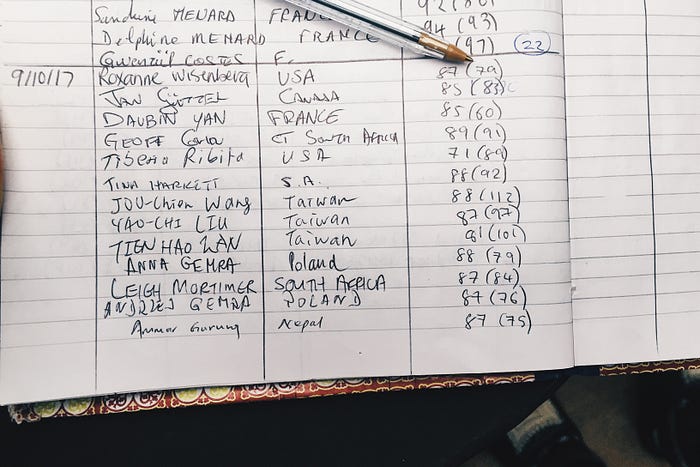 92 (80)
Sandrine MENARD FRANCE 94 (93)
Delphine MENARD FRANCE (97) (22)
Gwenziil COSTES F.
9/10/17 Roxanne Wisenberg USA 87 (79)
JAN CANADA 85 (83)
DAUBIN YAN FRANCE 85 (60)
GEOFF CT South Africa 89 (91)
Tiberio Ribita USA 71 (89)
TINA HARKETT S.A. 88 (92)
JOU-Chien Wang Taiwan 88 (112)
YAO-CHI LIU Taiwan 87 (97)
TIEN HAO LAN Taiwan 81 (101)
ANNA GEMRA Poland 88 (79)
LEIGH MORTIMER SOUTH AFRICA 87 (84)
ANDRZEJ GEMRA POLAND 87 (76)
Ammar Gurung Nepal 87 (75)